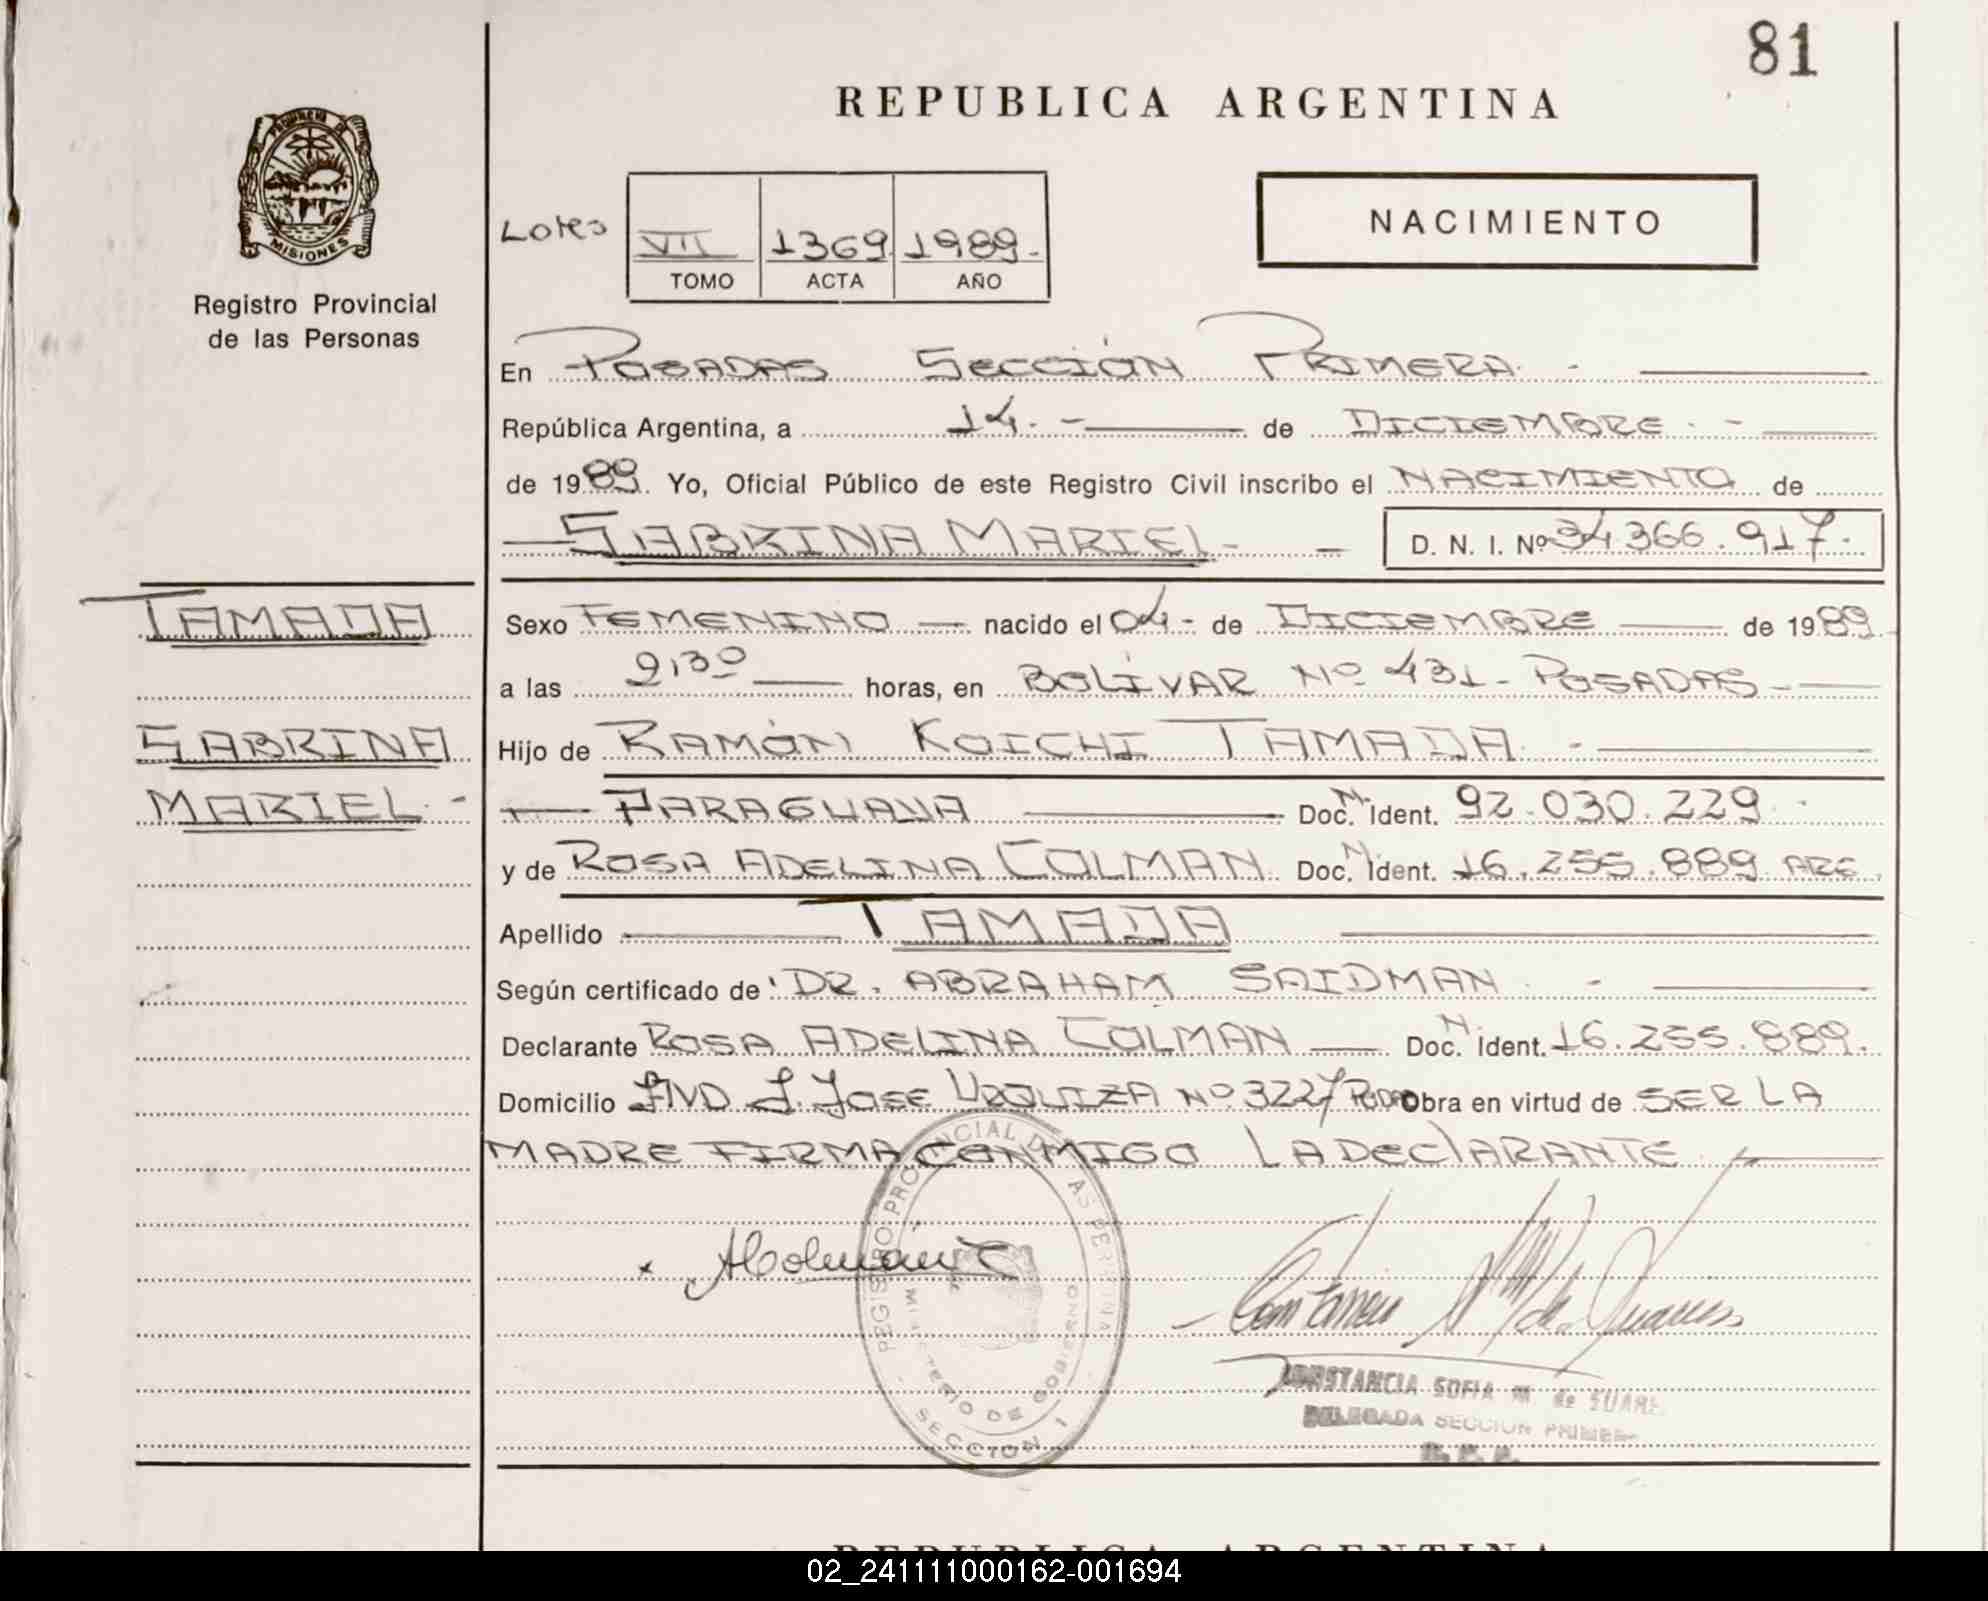 81
REPUBLICA ARGENTINA
PROVINCIA DE
MISIONES
Registro Provincial
de las Personas
Lotes VII 1369 1989.-
TOMO ACTA AÑO
NACIMIENTO
En POSADAS SECCIÓN PRIMERA.-
República Argentina, a 14.- de DICIEMBRE.-
de 1989. Yo, Oficial Público de este Registro Civil inscribo el NACIMIENTO de
SABRINA MARIEL.- D. N. I. Nº 34.366.917.-
TAMADA
SABRINA
MARIEL.-
Sexo FEMENINO nacido el 04- de DICIEMBRE de 1989.-
a las 9,30 horas, en BOLÍVAR Nº 431- POSADAS-
Hijo de RAMÓN KOICHI TAMADA.-
PARAGUAYA Doc. N. Ident. 92.030.229.-
y de ROSA ADELINA COLMAN Doc. N. Ident. 16.255.889 ARG.
Apellido TAMADA
Según certificado de DR. ABRAHAM SAIDMAN.-
Declarante ROSA ADELINA COLMAN Doc. N. Ident. 16.255.889.
Domicilio AVD J. JOSE URQUIZA Nº 3227 Obra en virtud de SER LA
MADRE FIRMA CONMIGO LA DECLARANTE.
REGISTRO PROVINCIAL DE LAS PERSONAS
MINISTERIO DE GOBIERNO
SECCION 1
CONSTANCIA SOFIA M. de SUAREZ
DELEGADA SECCION PRIMERA
REPUBLICA ARGENTINA
02_241111000162-001694